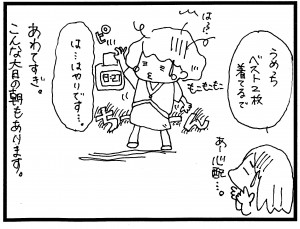 うめっち
ベスト2枚
着てるで
は…
もこもこもこ
8:27
は…はやりです…。
あ〜心配…。
あわてすぎ。
こんな大日の朝もあります。